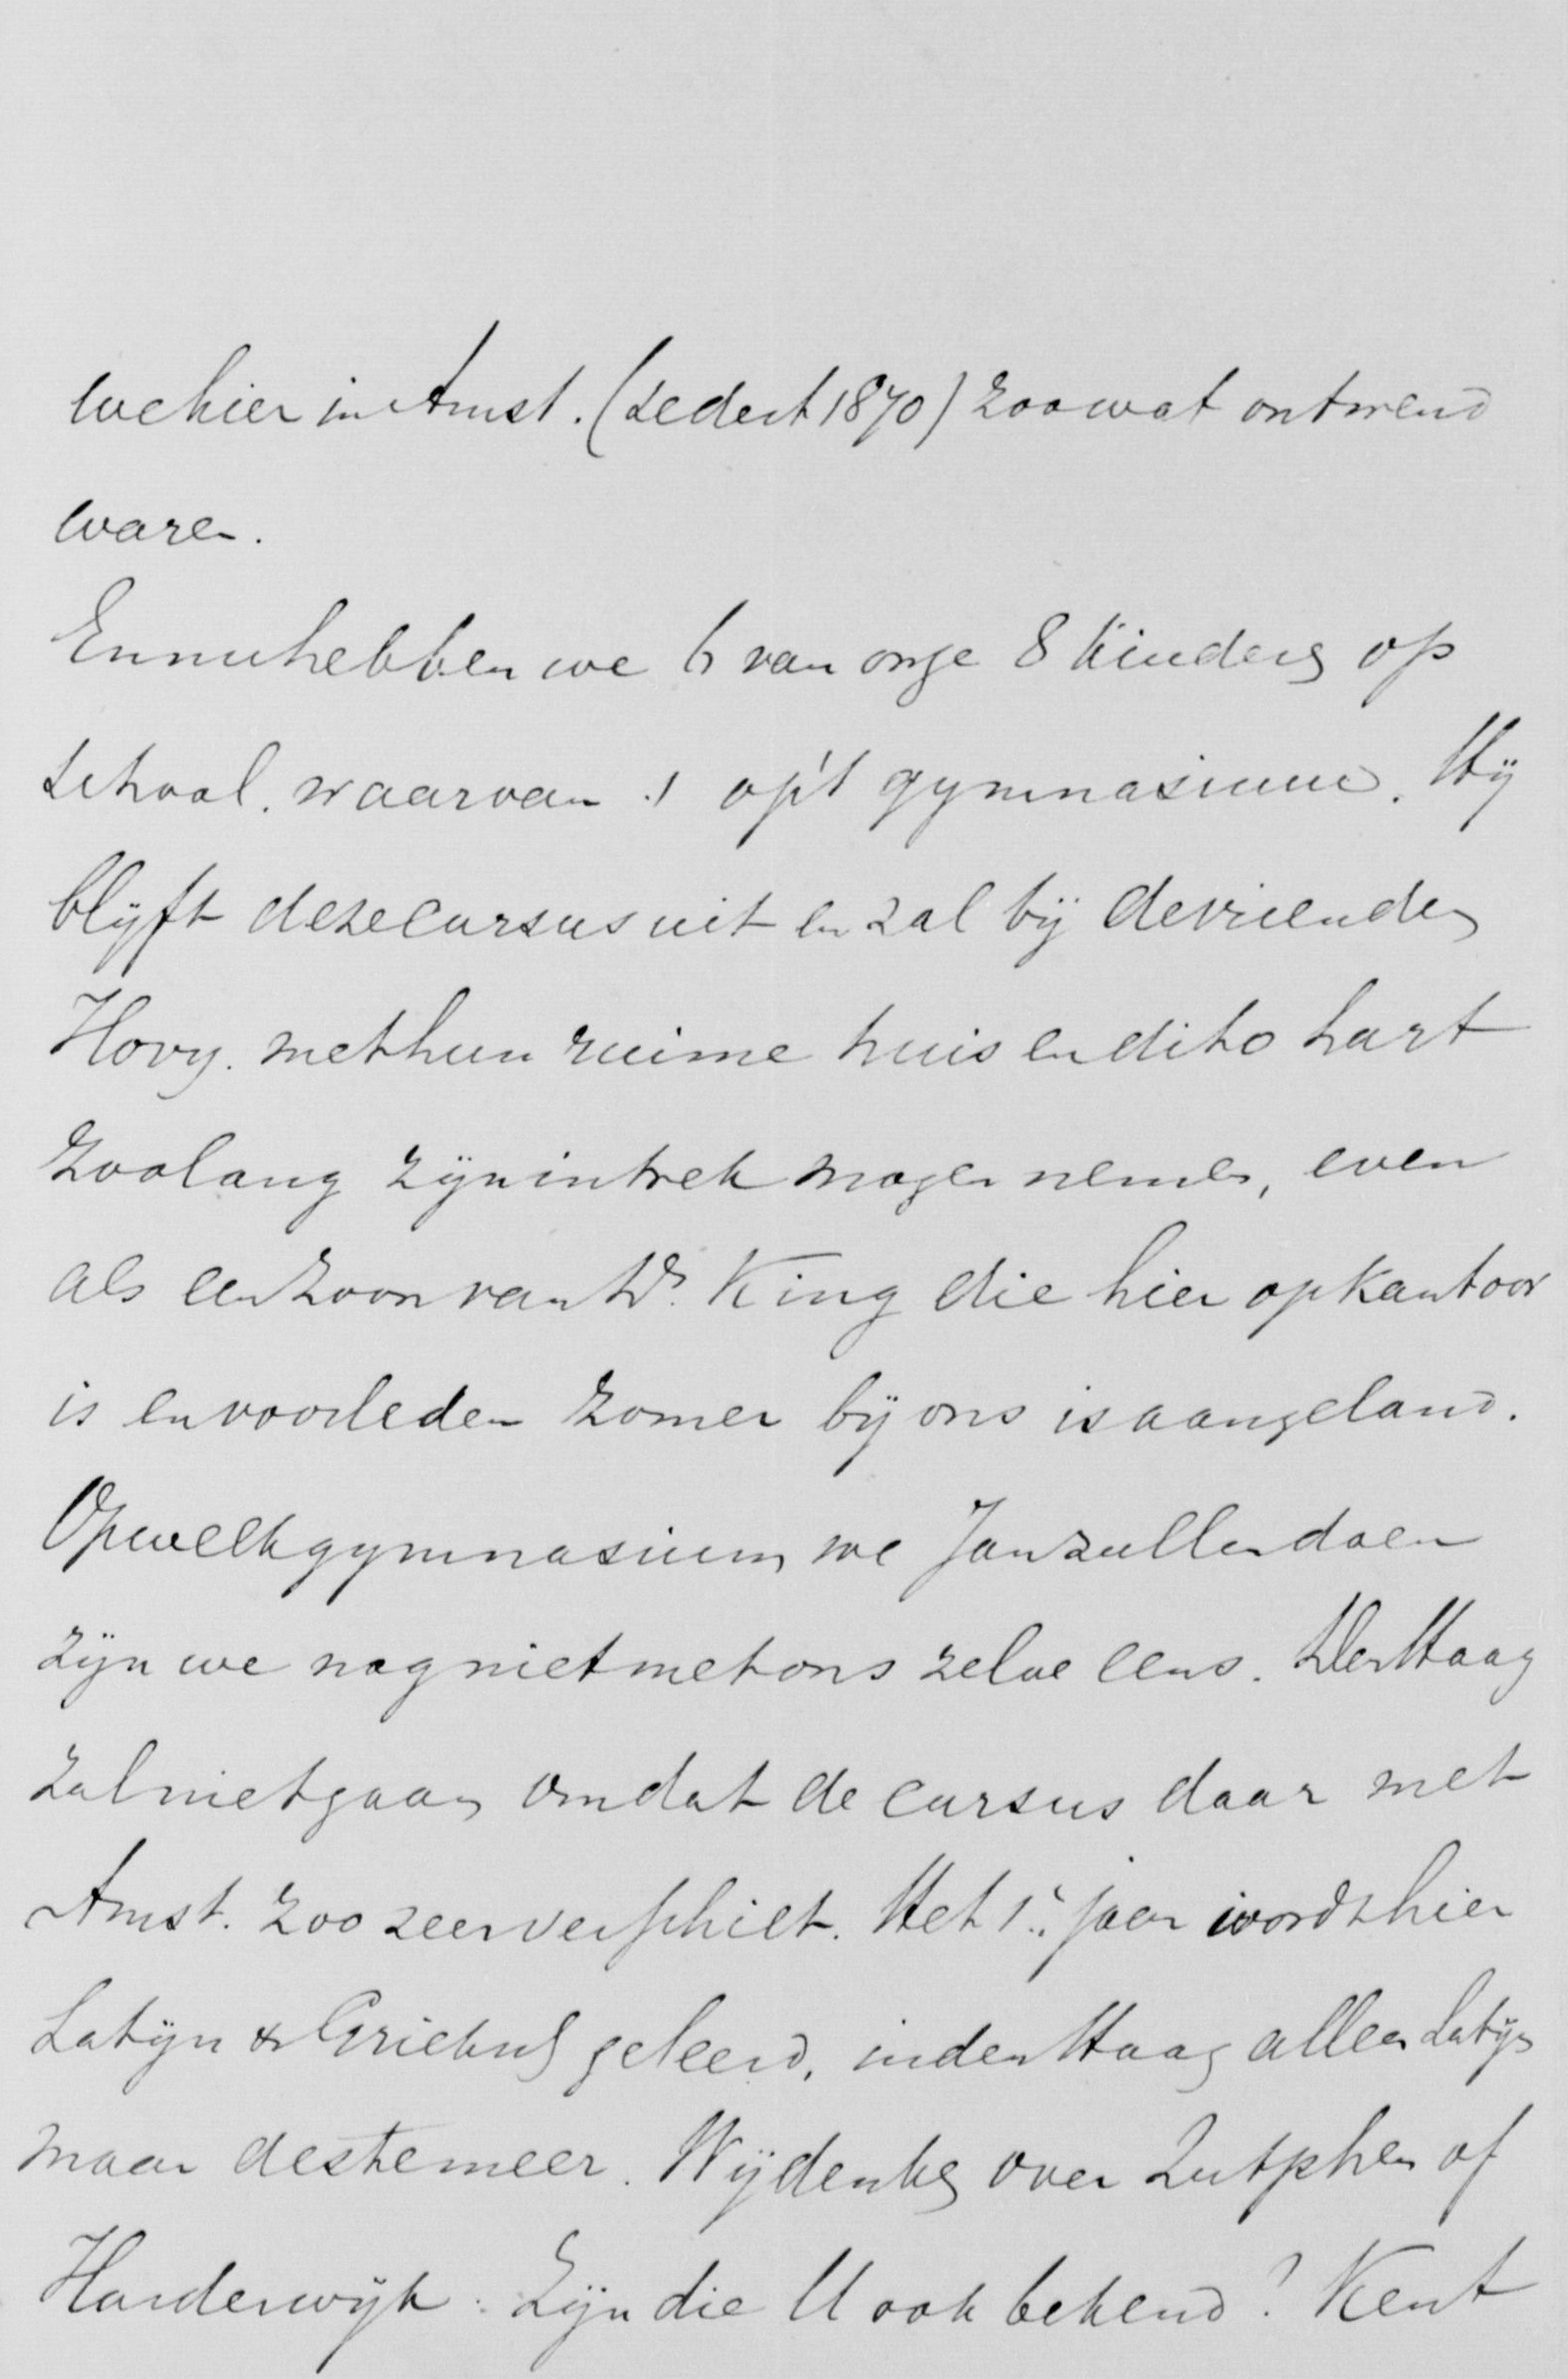 we hier in Amst. (sedert 1870) zoowat ontwend
waren.
En nu hebben we 6 van onze 8 kinders op
school. waarvan 1 op 't gymnasium. Hij
blijft deze cursus uit en zal bij de vrienden
Hovy. met hun ruime huis en dito hart
zoolang zijn intrek mogen nemen, even
als een zoon van Ds. King die hier op kantoor
is en voorleden zomer bij ons is aangeland.
Op welk gymnasium we Jan zullen doen
zijn we nog niet met ons zelve eens. Den Haag
zal niet gaan omdat de cursus daar met
Amst. zoo zeer verschilt. Het 1e jaar wordt hier
Latijn & Grieksch geleerd, in den Haag alleen Latijn
maar des te meer. Wij denken over Zutphen of
Harderwijk. Zijn die U ook bekend? Kent